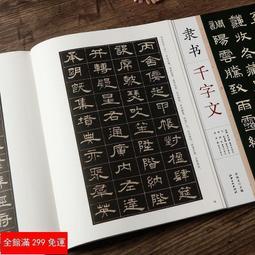 丙舍傍啟甲帳對楹肆筵
設席鼓瑟吹笙陞階納陛
弁轉疑星右通廣內左達
承明既集墳典亦聚群英
隶书 千字文
收冬藏閏餘
調陽雲騰致雨
全館滿 299 免運